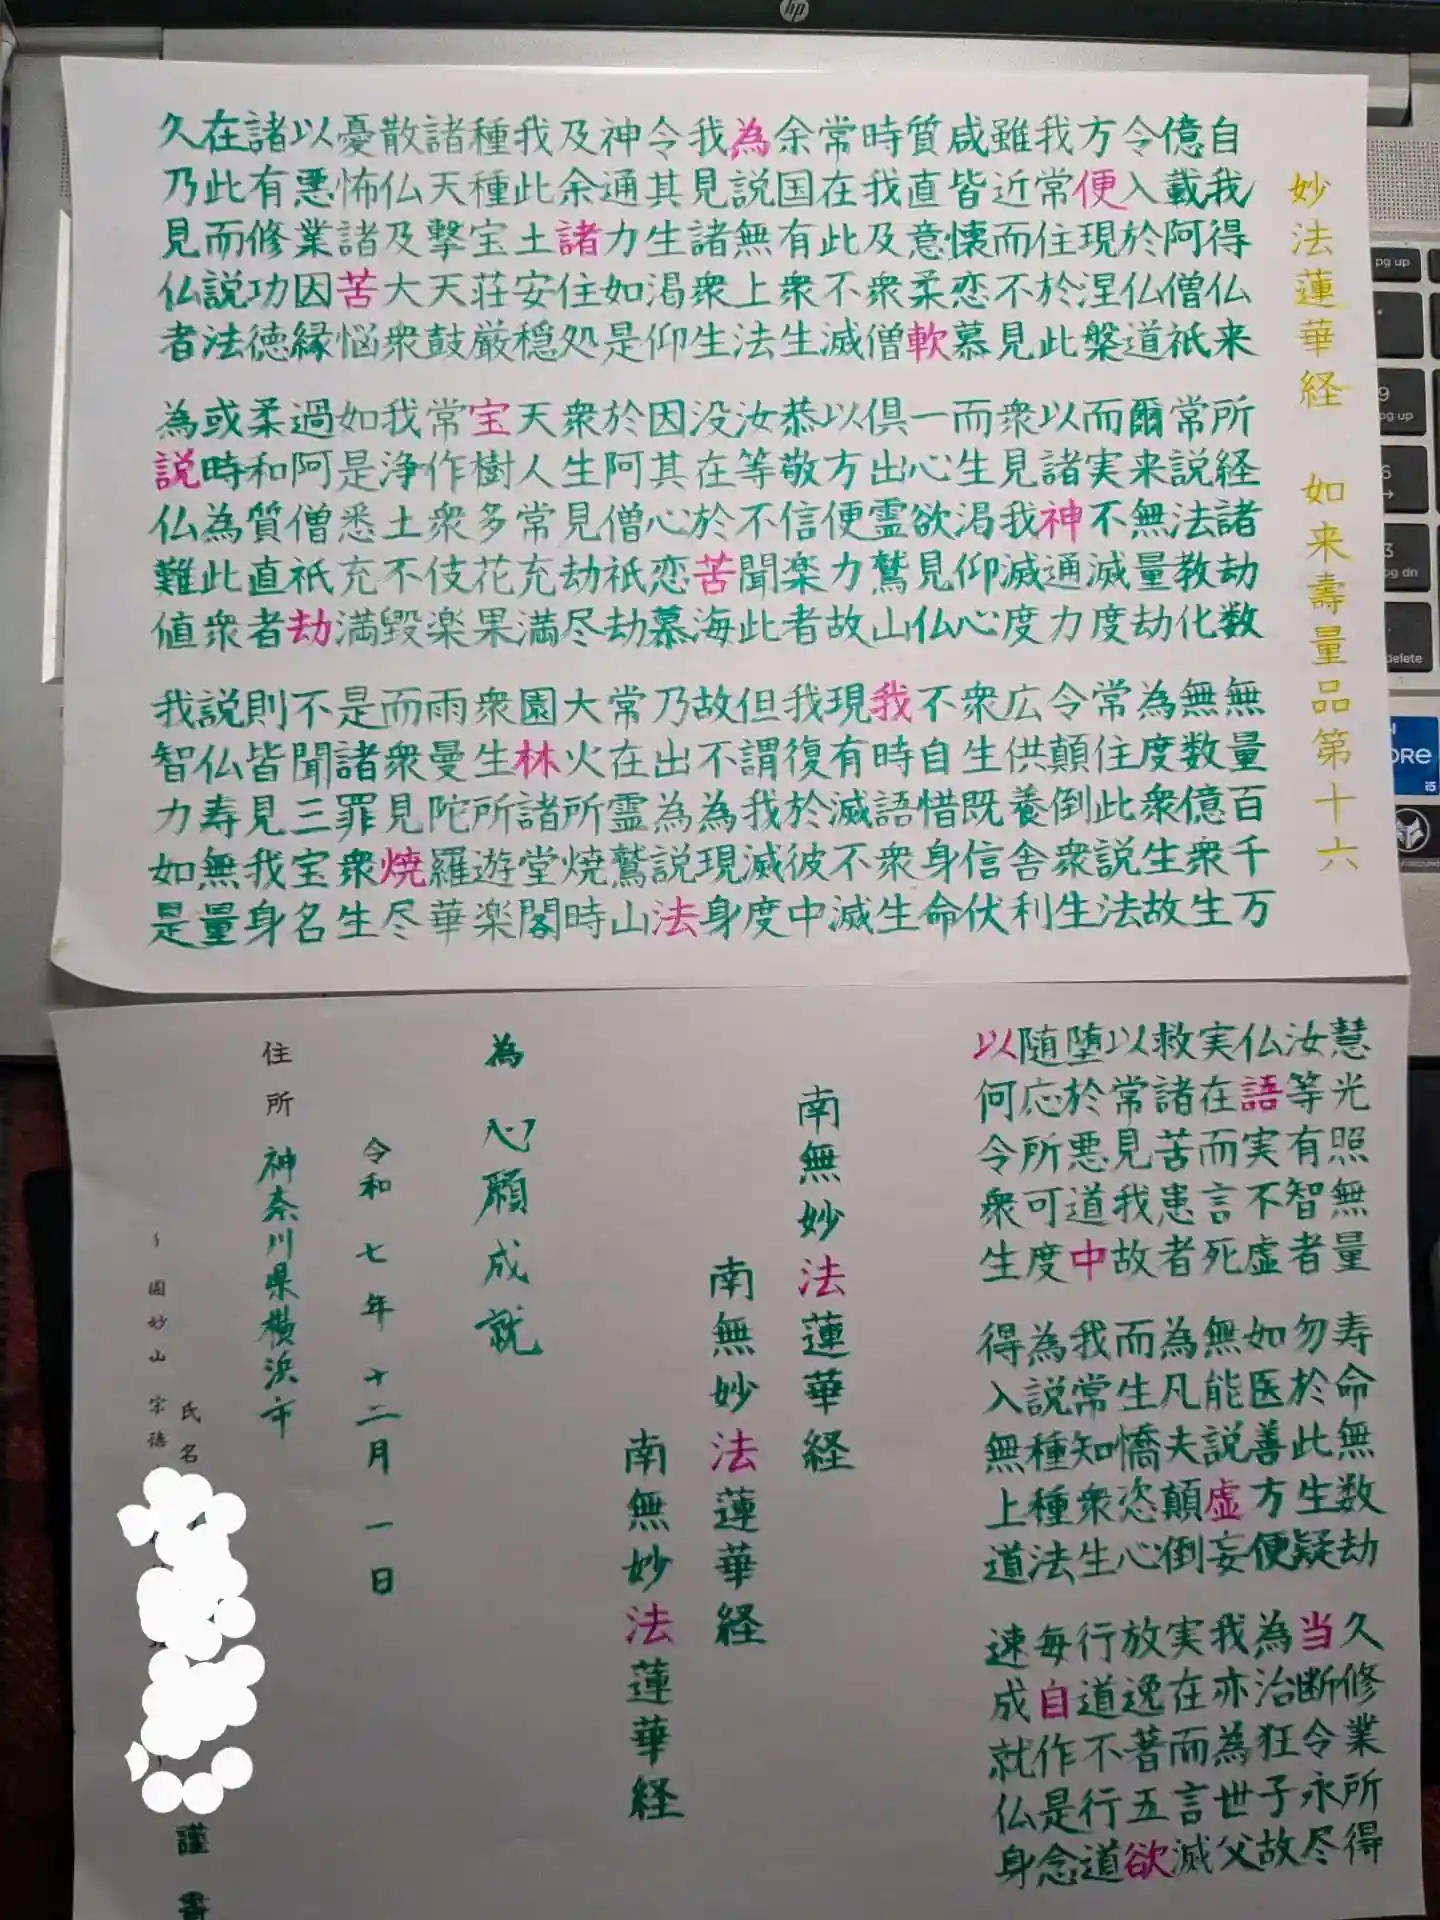 妙法蓮華経　如来壽量品第十六
自我得仏来　所経諸劫数　無量百千万
億載阿僧祇　常説法教化　無数億衆生
令入於仏道　爾来無量劫　為度衆生故
方便現涅槃　而実不滅度　常住此説法
我常住於此　以諸神通力　令顛倒衆生
雖近而不見　衆見我滅度　広供養舎利
咸皆懐恋慕　而生渇仰心　衆生既信伏
質直意柔軟　一心欲見仏　不自惜身命
時我及衆僧　倶出霊鷲山　我時語衆生
常在此不滅　以方便力故　現有滅不滅
余国有衆生　恭敬信楽者　我復於彼中
為説無上法　汝等不聞此　但謂我滅度
我見諸衆生　没在於苦海　故不為現身
令其生渇仰　因其心恋慕　乃出為説法
神通力如是　於阿僧祇劫　常在霊鷲山
及余諸住処　衆生見劫尽　大火所焼時
我此土安穏　天人常充満　園林諸堂閣
種種宝荘厳　宝樹多花果　衆生所遊楽
諸天撃天鼓　常作衆伎楽　雨曼陀羅華
散仏及大衆　我浄土不毀　而衆見焼尽
憂怖諸苦悩　如是悉充満　是諸罪衆生
以悪業因縁　過阿僧祇劫　不聞三宝名
諸有修功徳　柔和質直者　則皆見我身
在此而説法　或時為此衆　説仏寿無量
久乃見仏者　為説仏難値　我智力如是
慧光照無量　寿命無数劫　久修業所得
汝等有智者　勿於此生疑　当断令永尽
仏語実不虚　如医善方便　為治狂子故
実在而言死　無能説虚妄　我亦為世父
救諸苦患者　為凡夫顛倒　実在而言滅
以常見我故　而生憍恣心　放逸著五欲
堕於悪道中　我常知衆生　行道不行道
随応所可度　為説種種法　毎自作是念
以何令衆生　得入無上道　速成就仏身
南無妙法蓮華経
南無妙法蓮華経
南無妙法蓮華経
為　心願成就
令和七年十二月一日
住所　神奈川県横浜市
氏名　謹書
～圓妙山　宗徳
hp
pg up
9
pg up
6
3
pg dn
delete
i5